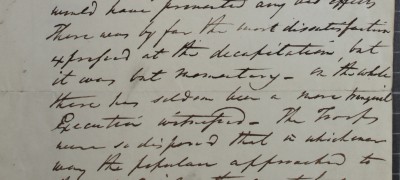 would have prevented any bad effects
There was by far the most dissatisfaction
expressed at the decapitation but
it was but momentary - on the whole
there has seldom been a more tranquil
Execution witnessed - The Troops
were so disposed that in whichever
way the populace approached to